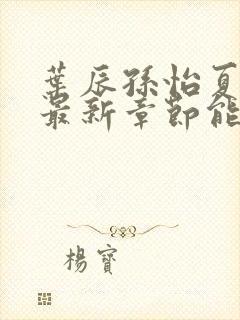 葉辰孫怡夏
最新章節能
楊寶